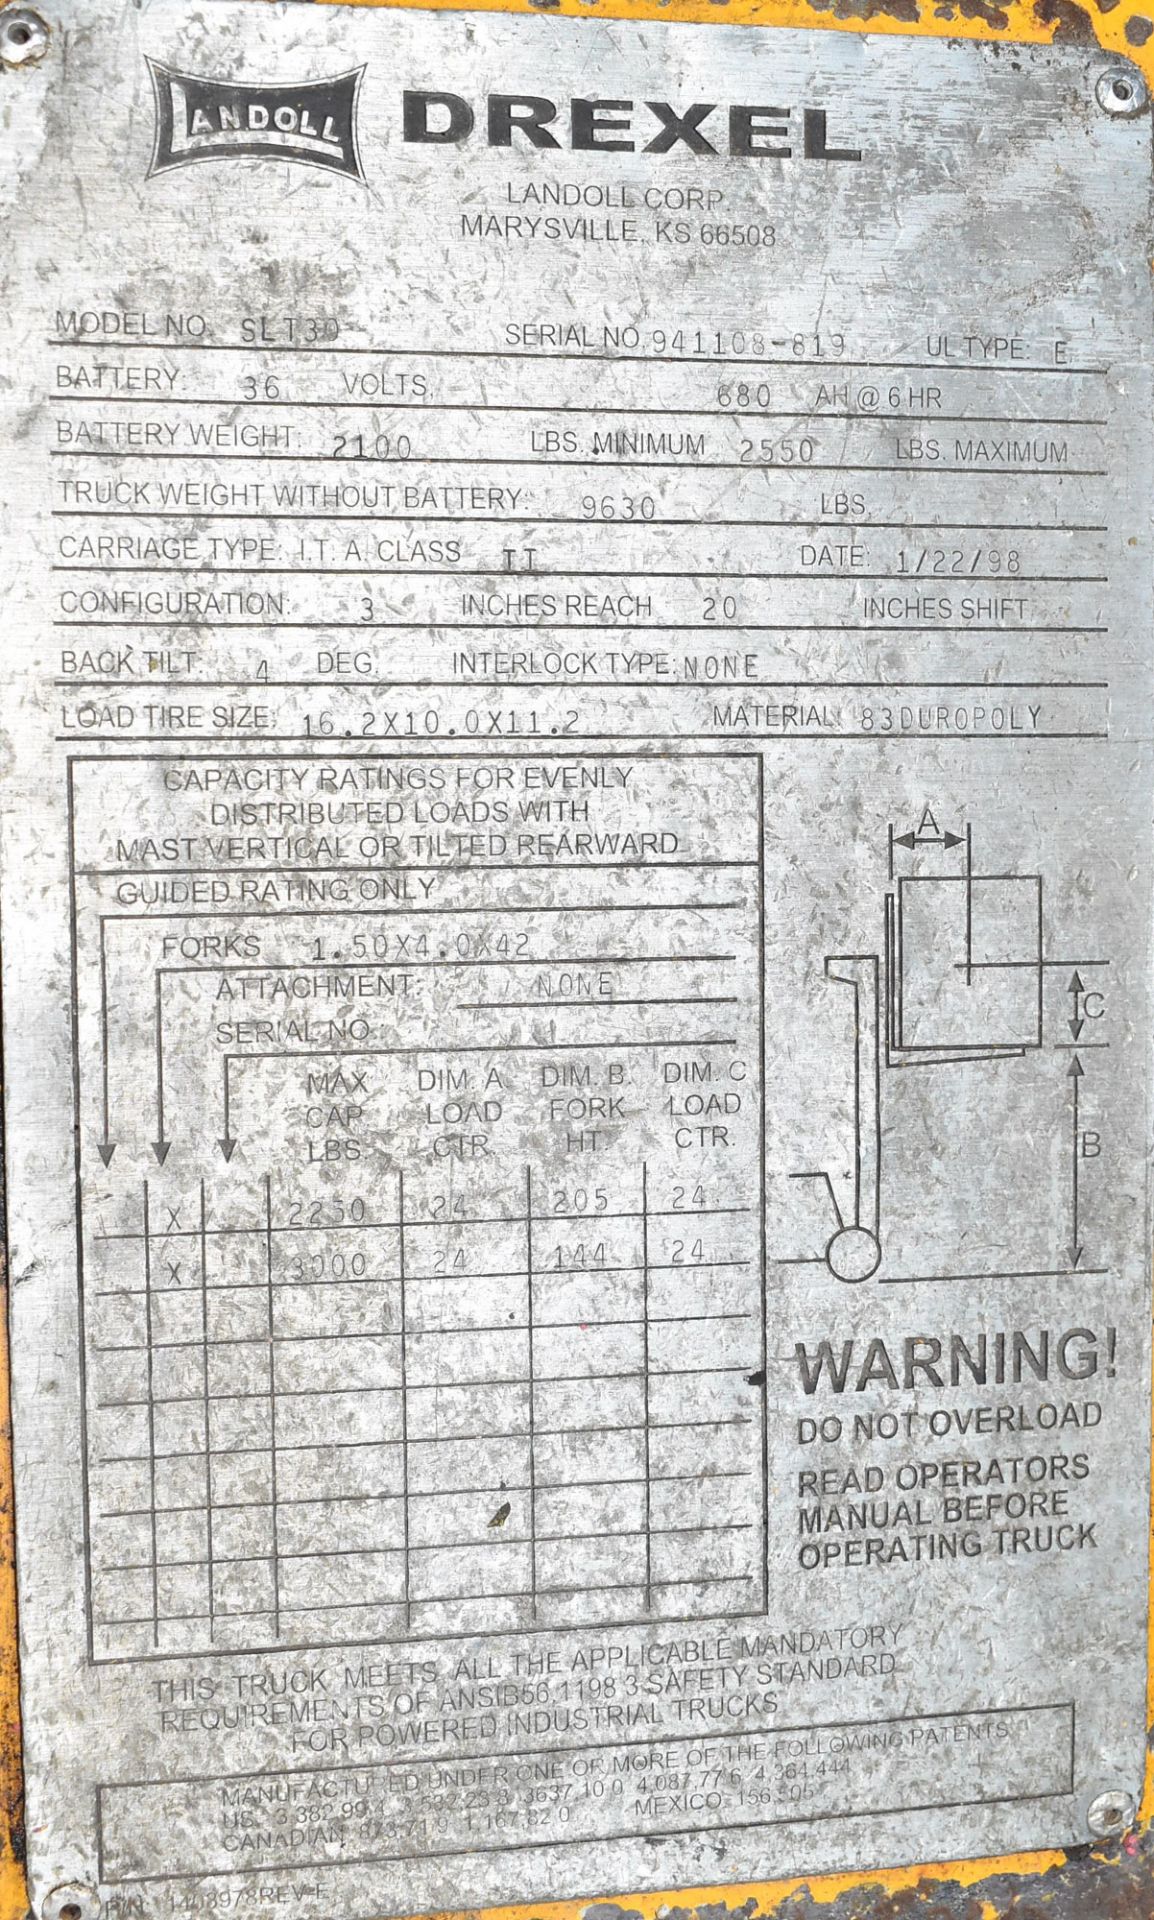 LANDOLL DREXEL
LANDOLL CORP.
MARYSVILLE, KS 66508
MODEL NO. SLT30 SERIAL NO. 941108-819 UL TYPE: E
BATTERY: 36 VOLTS, 680 AH @ 6 HR
BATTERY WEIGHT: 2100 LBS. MINIMUM 2550 LBS. MAXIMUM
TRUCK WEIGHT WITHOUT BATTERY: 9630 LBS.
CARRIAGE TYPE: I.T. A. CLASS II DATE: 1/22/98
CONFIGURATION: 3 INCHES REACH 20 INCHES SHIFT
BACK TILT: 4 DEG. INTERLOCK TYPE: NONE
LOAD TIRE SIZE: 16.2X10.0X11.2 MATERIAL: 83DUROPOLY
CAPACITY RATINGS FOR EVENLY
DISTRIBUTED LOADS WITH
MAST VERTICAL OR TILTED REARWARD
GUIDED RATING ONLY
FORKS 1.50X4.0X42
ATTACHMENT: NONE
SERIAL NO.:
MAX DIM. A DIM. B. DIM. C
CAP LOAD FORK LOAD
LBS. CTR. HT. CTR.
X 2250 24 205 24
X 3000 24 144 24
A
C
B
WARNING!
DO NOT OVERLOAD
READ OPERATORS
MANUAL BEFORE
OPERATING TRUCK
THIS TRUCK MEETS ALL THE APPLICABLE MANDATORY
REQUIREMENTS OF ANSIB56,1198 3 SAFETY STANDARD
FOR POWERED INDUSTRIAL TRUCKS
MANUFACTURED UNDER ONE OR MORE OF THE FOLLOWING PATENTS
US: 3,382,99 3637,10 0 4,087,77 6 4,364,444
CANADIAN: 873,71 9 1,167,82 0 MEXICO-156,505
P/N: 1408978REV-E